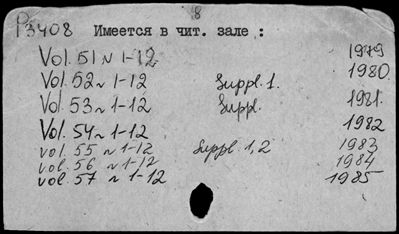 8
Р3408 Имеется в чит. зале :
Vol. 51 N 1-12 1979
Vol. 52 N 1-12 Suppl. 1. 1980.
Vol. 53 N 1-12 Suppl. 1981.
Vol. 54 N 1-12 1982
vol. 55 N 1-12 Suppl. 1, 2 1983
vol. 56 N 1-12 1984
vol. 57 N 1-12 1985